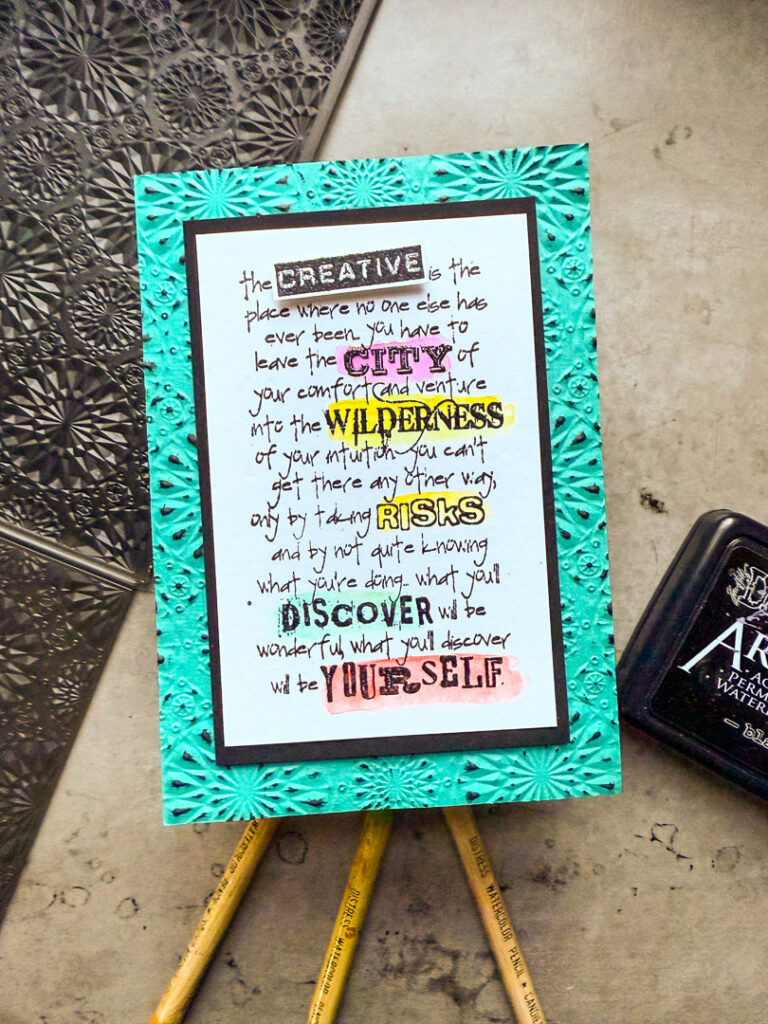 the CREATIVE is the
place where no one else has
ever been. you have to
leave the CITY of
your comfort and venture
into the WILDERNESS
of your intuition. you can't
get there any other way,
only by taking RISKS
and by not quite knowing
what you're doing. what you'll
DISCOVER will be
wonderful, what you'll discover
will be YOURSELF.
DISTRESS WATERCOLOR
DISTRESS WATERCOLOR PENCIL